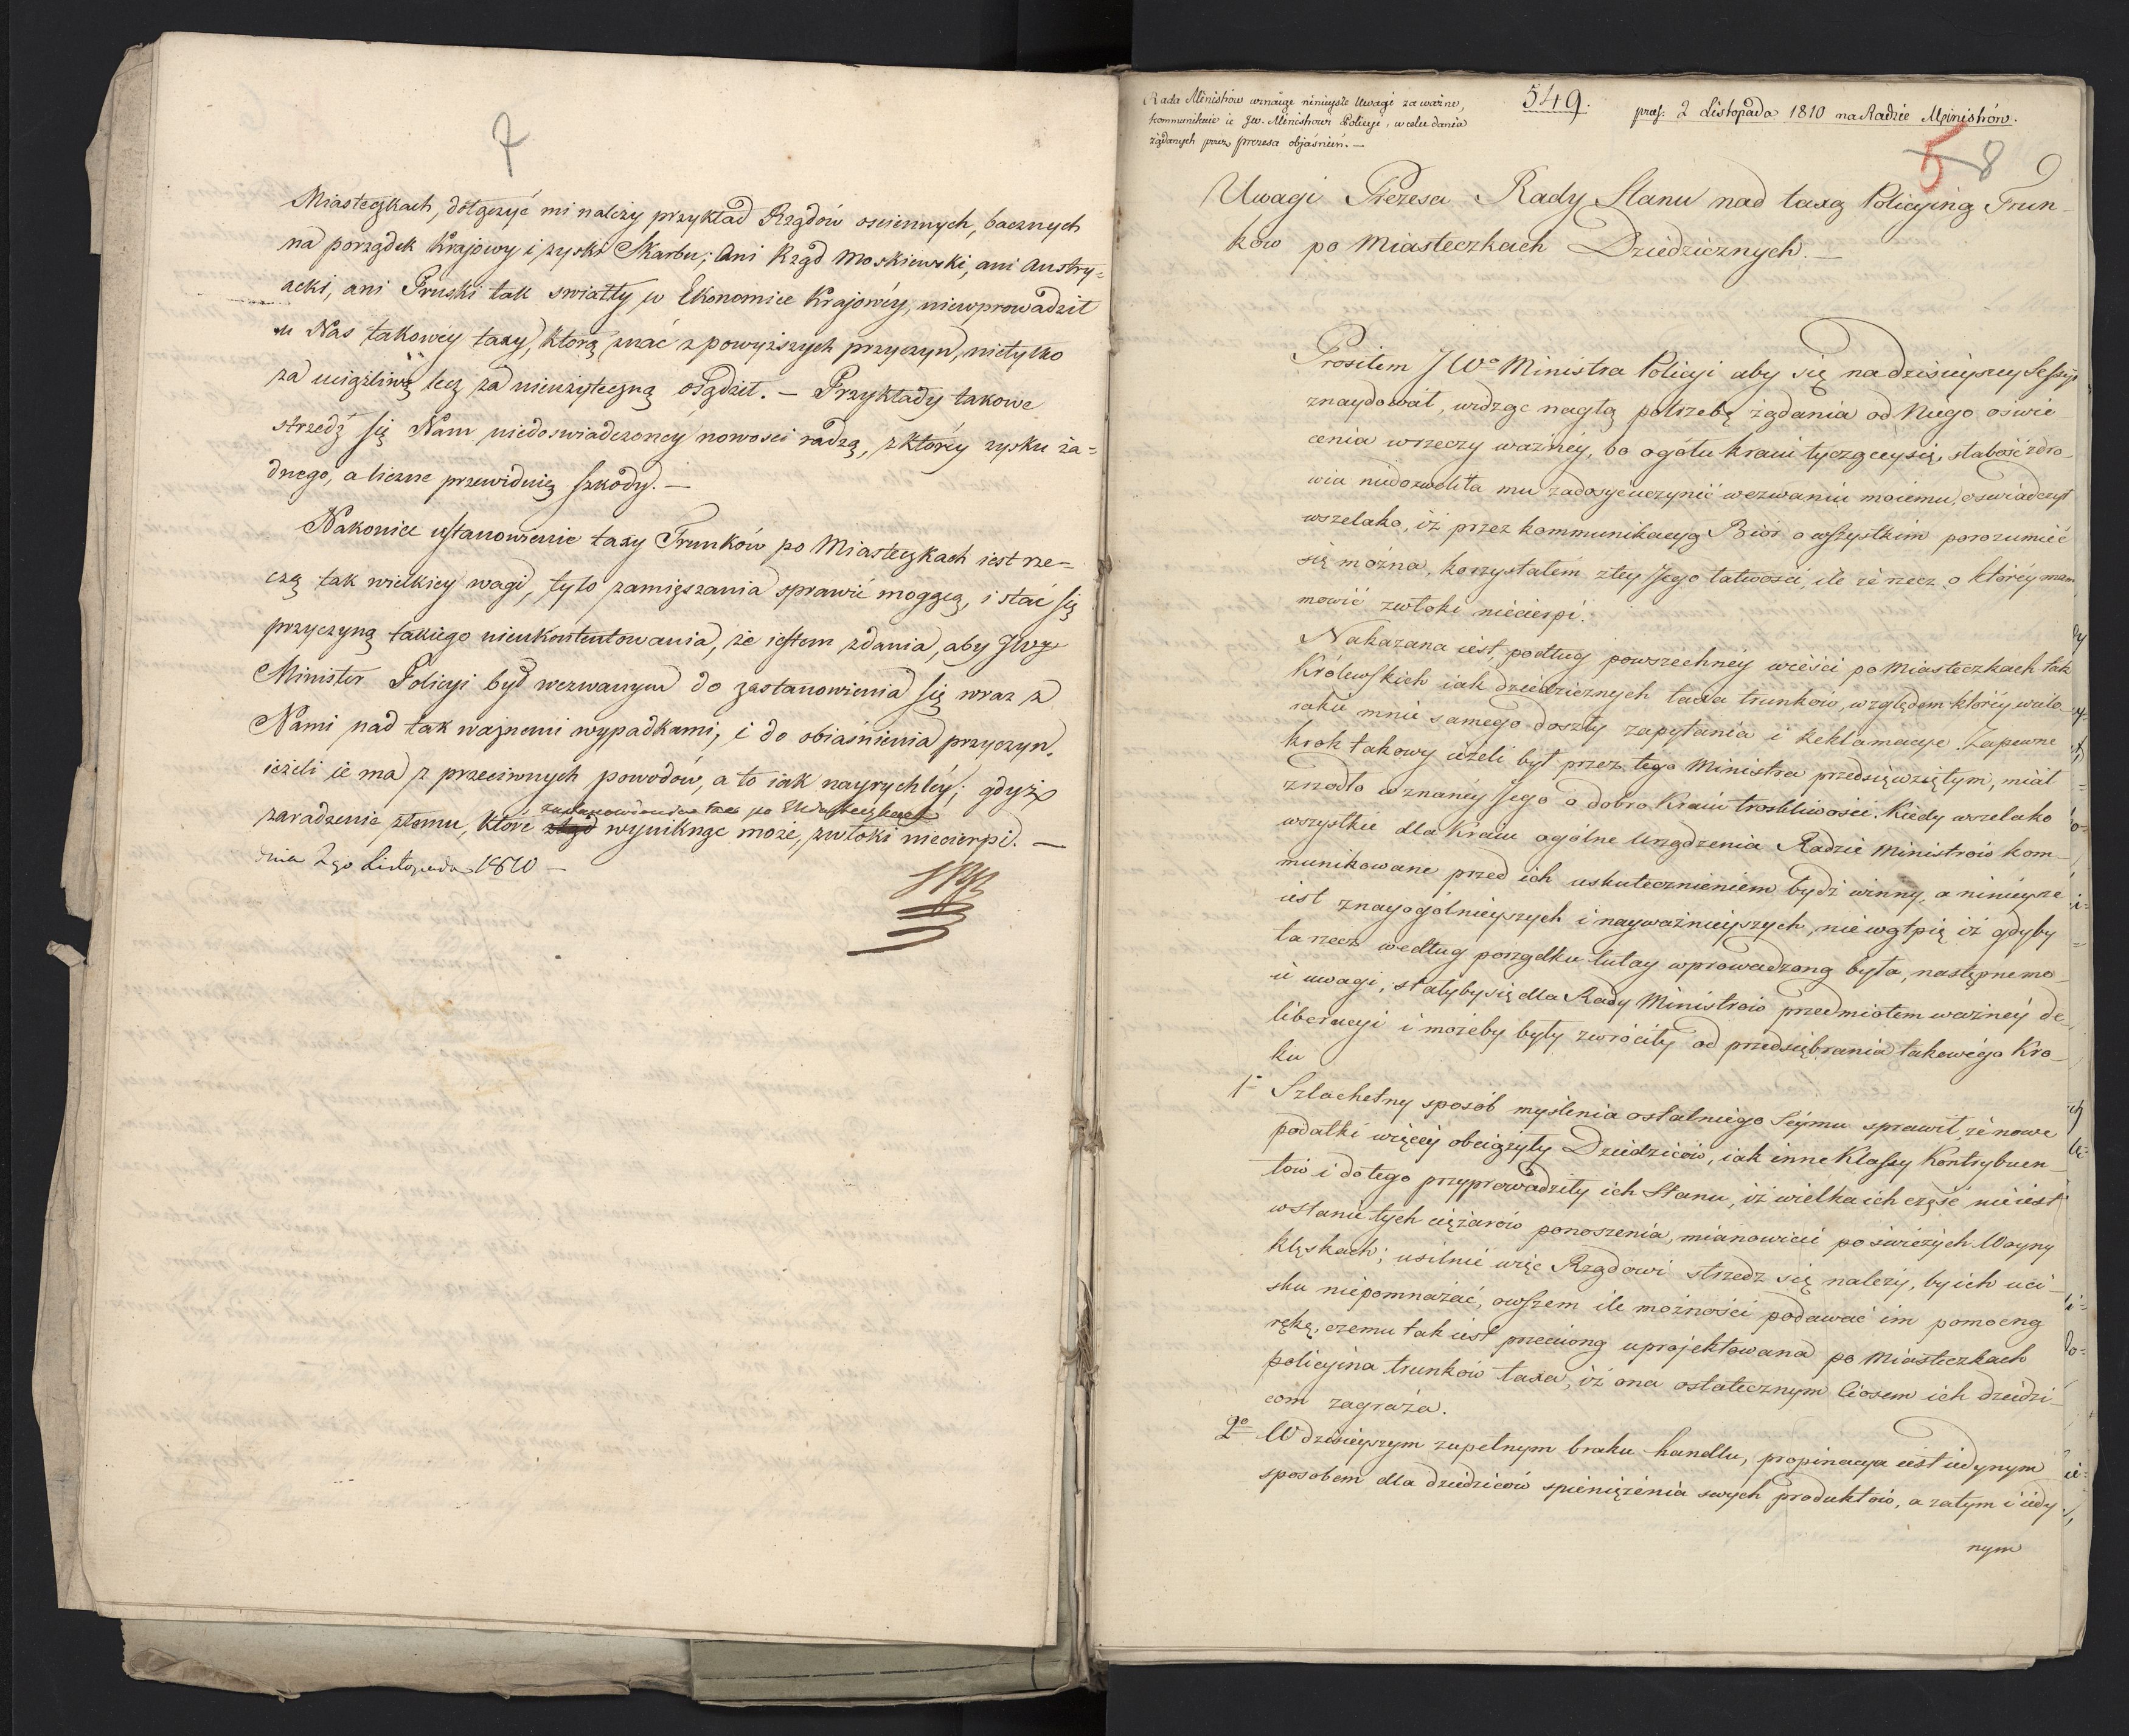 7
Miasteczkach, dołączyć mi należy przykład Rządów osciennych, bacznych
na porządek Krajowy i zyski Skarbu; Ani Rząd Moskiewski, ani Austry=
acki, ani Pruski tak swiatły w Ekonomice Krajowéy, niewprowadził
u Nas takowéy taxy, którą znać z powyższych przyczyn, nietylko
za uciążliwą lecz za nieużyteczną osądził. — Przykłady takowe
strzedź się Nam niedoswiadczoney nowosci radzą, z którey zysku ża=
dnego, a liczne przewiduię szkody. —
Nakoniec ustanowienie taxy Trunków po Miasteczkach iest rze=
czą tak wielkiey wagi, tylo zamięszania sprawić mogącą, i stać się
przyczyną takiego nieukontentowania, że iestem zdania, aby JWy
Minister Policyi był wezwanym do zastanowienia się wraz z
Nami nad tak ważnemi wypadkami, i do obiaśnienia przyczyn,
ieżeli ie ma z przeciwnych powodów, a to iak nayrychléy; gdyż
po Miasteczkach
zaradzenie złemu, które ztąd wyniknąc może, zwłoki niecierpi. —
dnia 2go Listopada 1810 —
Rada Ministrów uznaiąc ninieysze Uwagi za ważne,
kommunikuie ie JW. Ministrowi Policyi, w celu dania
żądanych przez Prezesa objaśnień. —
549.
præs. 2 Listopada 1810 na Radzie Ministrów.
5 8 9
Uwagi Prezesa Rady Stanu nad taxą Policyiną Trun-
ków po Miasteczkach Dziedzicznych. —
Prosiłem JWo Ministra Policyi aby się na dzisieyszey Sessyi
znaydował, widząc nagłą potrzebę żądania od Niego oswie
cenia w rzeczy ważnéy, bo ogółu kraiu tyczącey się, słabość zdro-
wia niedozwoliła mu zadosyć uczynić wezwaniu moiemu, oswiadczył
wszelako, iż przez kommunikacyą Biór o wszystkim porozumieć
się można, korzystałem z tey Jego łatwości, ile że rzecz o którey mam
mowić zwłoki niecierpi.
Nakazana iest, podług powszechnéy wieści po Miasteczkach tak
Królewskich iak dziedzicznych taxa trunków, względem któréy wielo-
rakie mnie samego doszły zapytania i Reklamacye. Zapewne
krok takowy ieżeli był przez tego Ministra przedsięwziętym, miał
zrzodło w znanéy Jego o dobro Kraiu troskliwości. Kiedy wszelako
wszystkie dla Kraiu ogólne urządzenia Radzie Ministrów kom-
munikowane przed ich uskutecznieniem bydź winny, a ninieysze
iest z nayogólnieyszych i nayważnieyszych, niewątpię iż gdyby
ta rzecz według porządku tutay wprowadzoną była, następne mo-
ie uwagi, stałyby się dla Rady Ministrów przedmiotem ważnéy de-
liberacyi i możeby były zwróciły od przedsiębrania takowégo Kro-
ku
1o Szlachetny sposób myślenia ostatniego Séymu sprawił, że nowe
podatki więcéy obciążyły Dziedziców, iak inne Klassy Kontrybuen-
tów i do tego przyprowadziły ich Stanu, iż wielka ich częśc nie iest
w stanie tych ciężarów ponoszenia, mianowicie po świeżych Woyny
klęskach; usilnie więc Rządowi strzedz się należy, by ich uci-
sku niepomnażać, owszem ile możności podawać im pomocną
rękę, czemu tak iest przeciwną uprojektowana po Miasteczkach
policyina trunków taxa, iż ona ostatecznym Ciosem ich dziedzi-
com zagraża.
2o W dzisieyszym zupełnym braku handlu, propinacya iest iedynym
sposobem dla dziedziców spieniężenia swych produktów, a zatym i iedy
nym